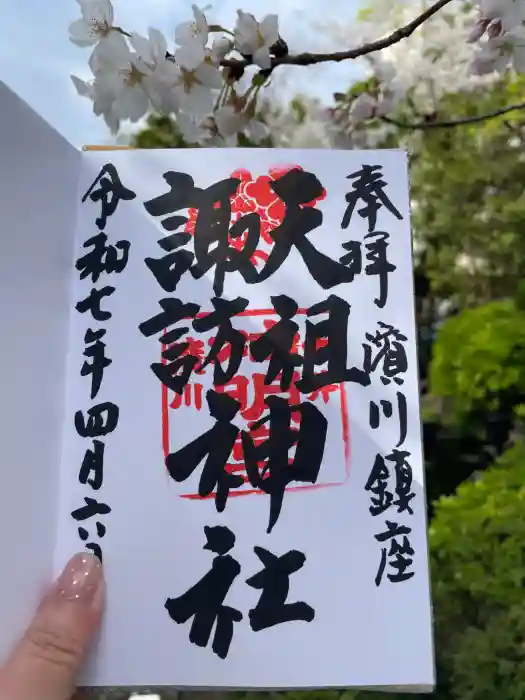 奉拝 濱川鎮座
天祖
諏訪神社
令和七年四月六日